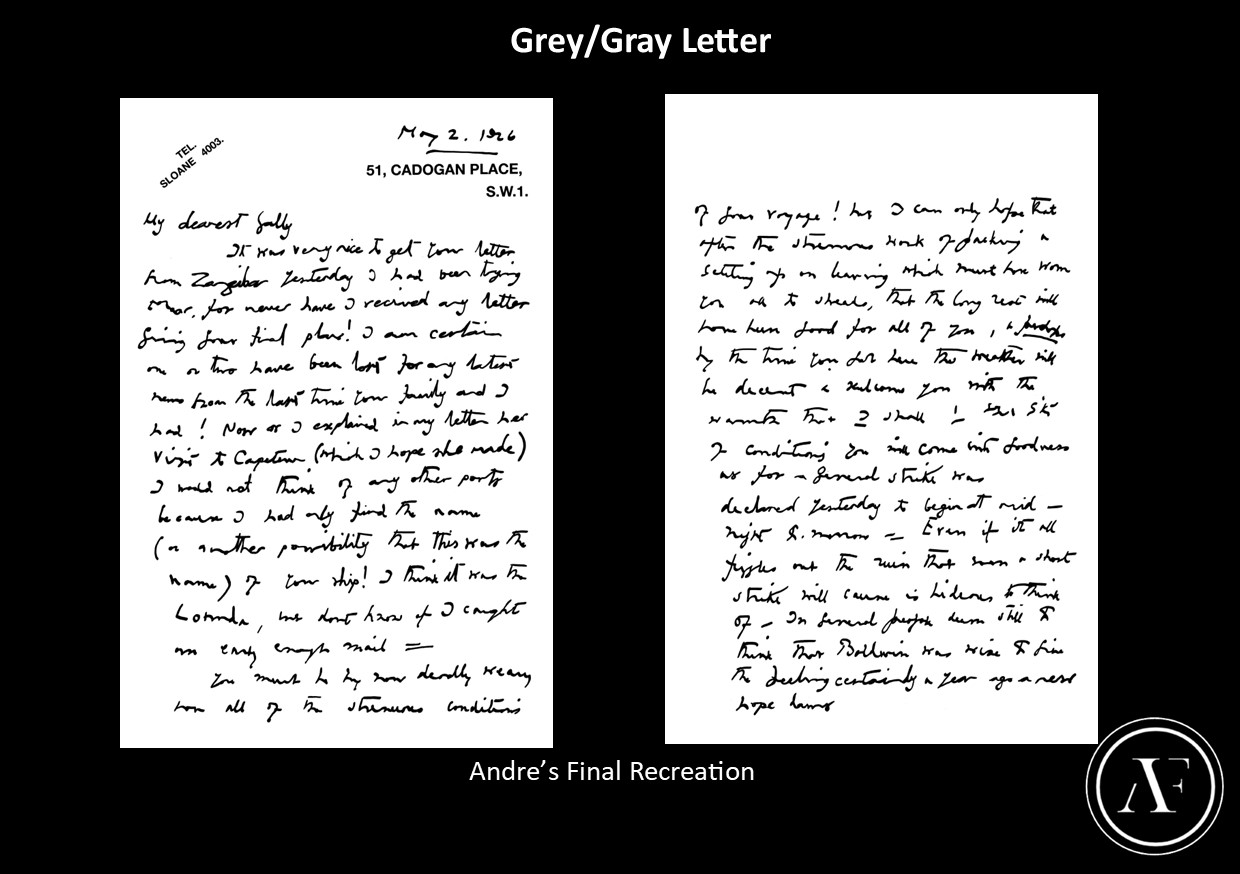 Grey/Gray Letter
May 2. 1926
TEL.
SLOANE 4003.
51, CADOGAN PLACE,
S.W.1.
My dearest Sally
It was very nice to get your letter
from Zanzibar yesterday I had been
for never have I recived any letter
giving your final plans! I am certain
one or two have been lost for any latest
news from the last time your family and I
had! Now as I explained in my letter her
visit to Capetown (which I hope she made)
I would not think of any other ports
because I had only find the name
(or another possibility that this was the
name) of your ship! I think it was the
we dont know if I caught
an early enough mail =
You must be by now deadly weary
from all of the strenuous conditions
of your voyage! but I can only hope that
after the strenuous work of packing &
settling up on leaving which must have worn
you all to shreds, that the long rest will
have been good for all of you, &
by the time you get here the weather will
be decent & welcome you with the
warmth that I shall!
of conditions you will come into goodness
as for a general strike was
declared yesterday to begin at mid –
night = Even if it all
fizzles out the ruin that even a short
strike will cause is hideous to think
of – In general people seem still to
think that Baldwin was wise to give
the certainly a year ago a
hope
Andre's Final Recreation
AF